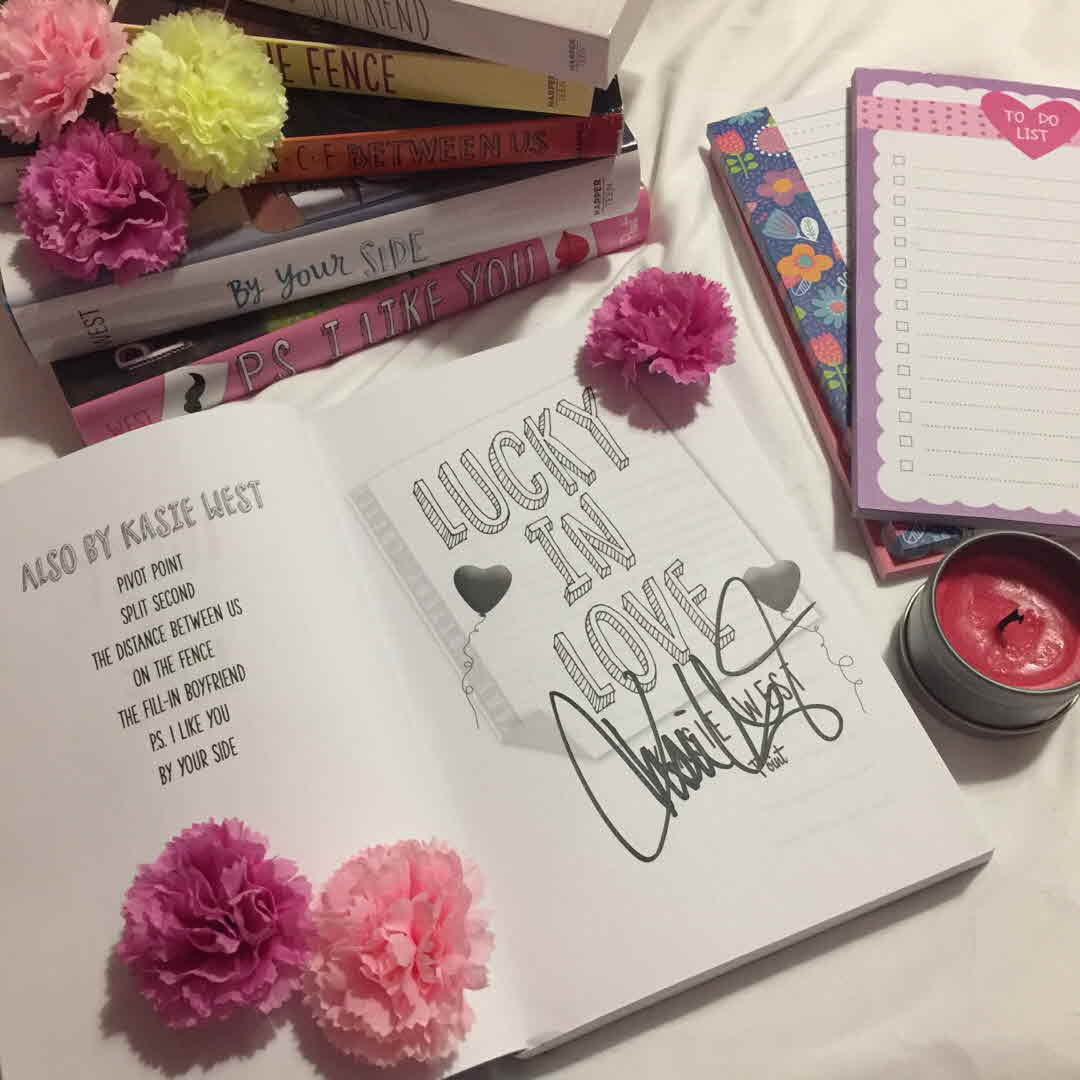 BOYFRIEND
HARPER TEEN
THE FENCE
HARPER TEEN
N·C·E BETWEEN US
HARPER TEEN
WEST BY YOUR SIDE
HARPER TEEN
WEST P.S. I LIKE YOU
TO DO
LIST
ALSO BY KASIE WEST
PIVOT POINT
SPLIT SECOND
THE DISTANCE BETWEEN US
ON THE FENCE
THE FILL-IN BOYFRIEND
P.S. I LIKE YOU
BY YOUR SIDE
LUCKY
IN
LOVE
WEST
Point